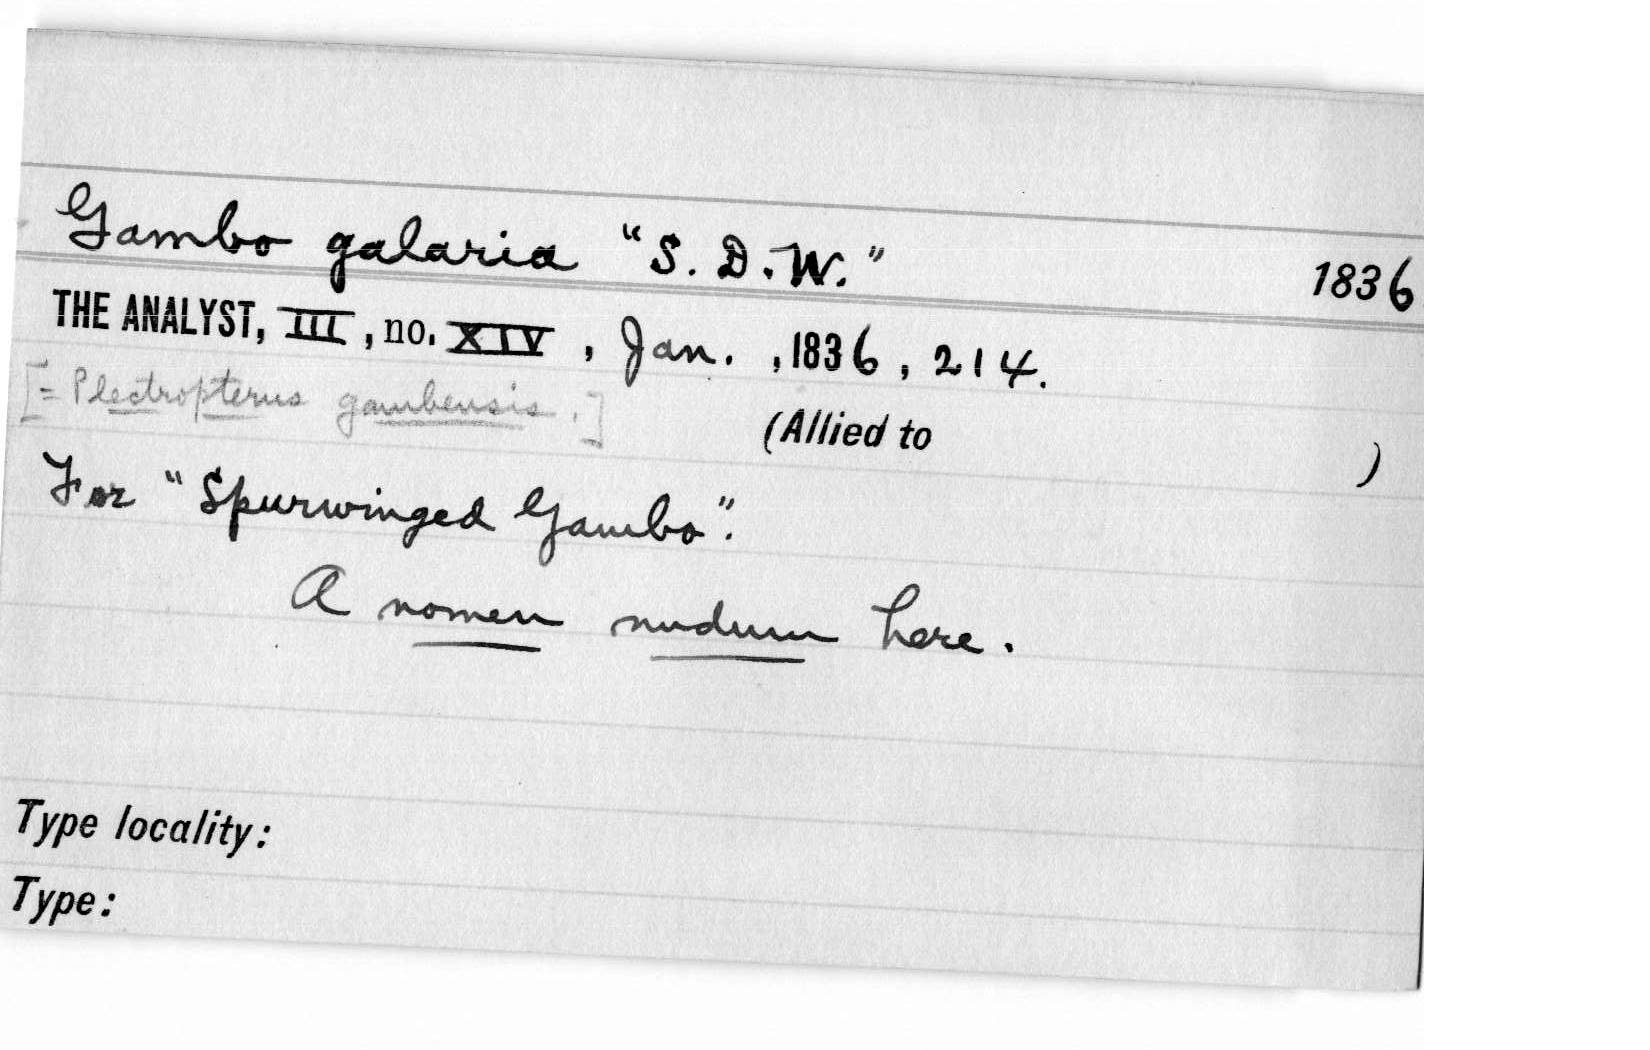 Gambo galaria "S. D. W." 1836
THE ANALYST, III, no. XIV, Jan. , 1836, 214.
[= Plectropterus gambensis.]
(Allied to )
For "Spurwinged Gambo".
A nomen nudum here.
Type locality:
Type: